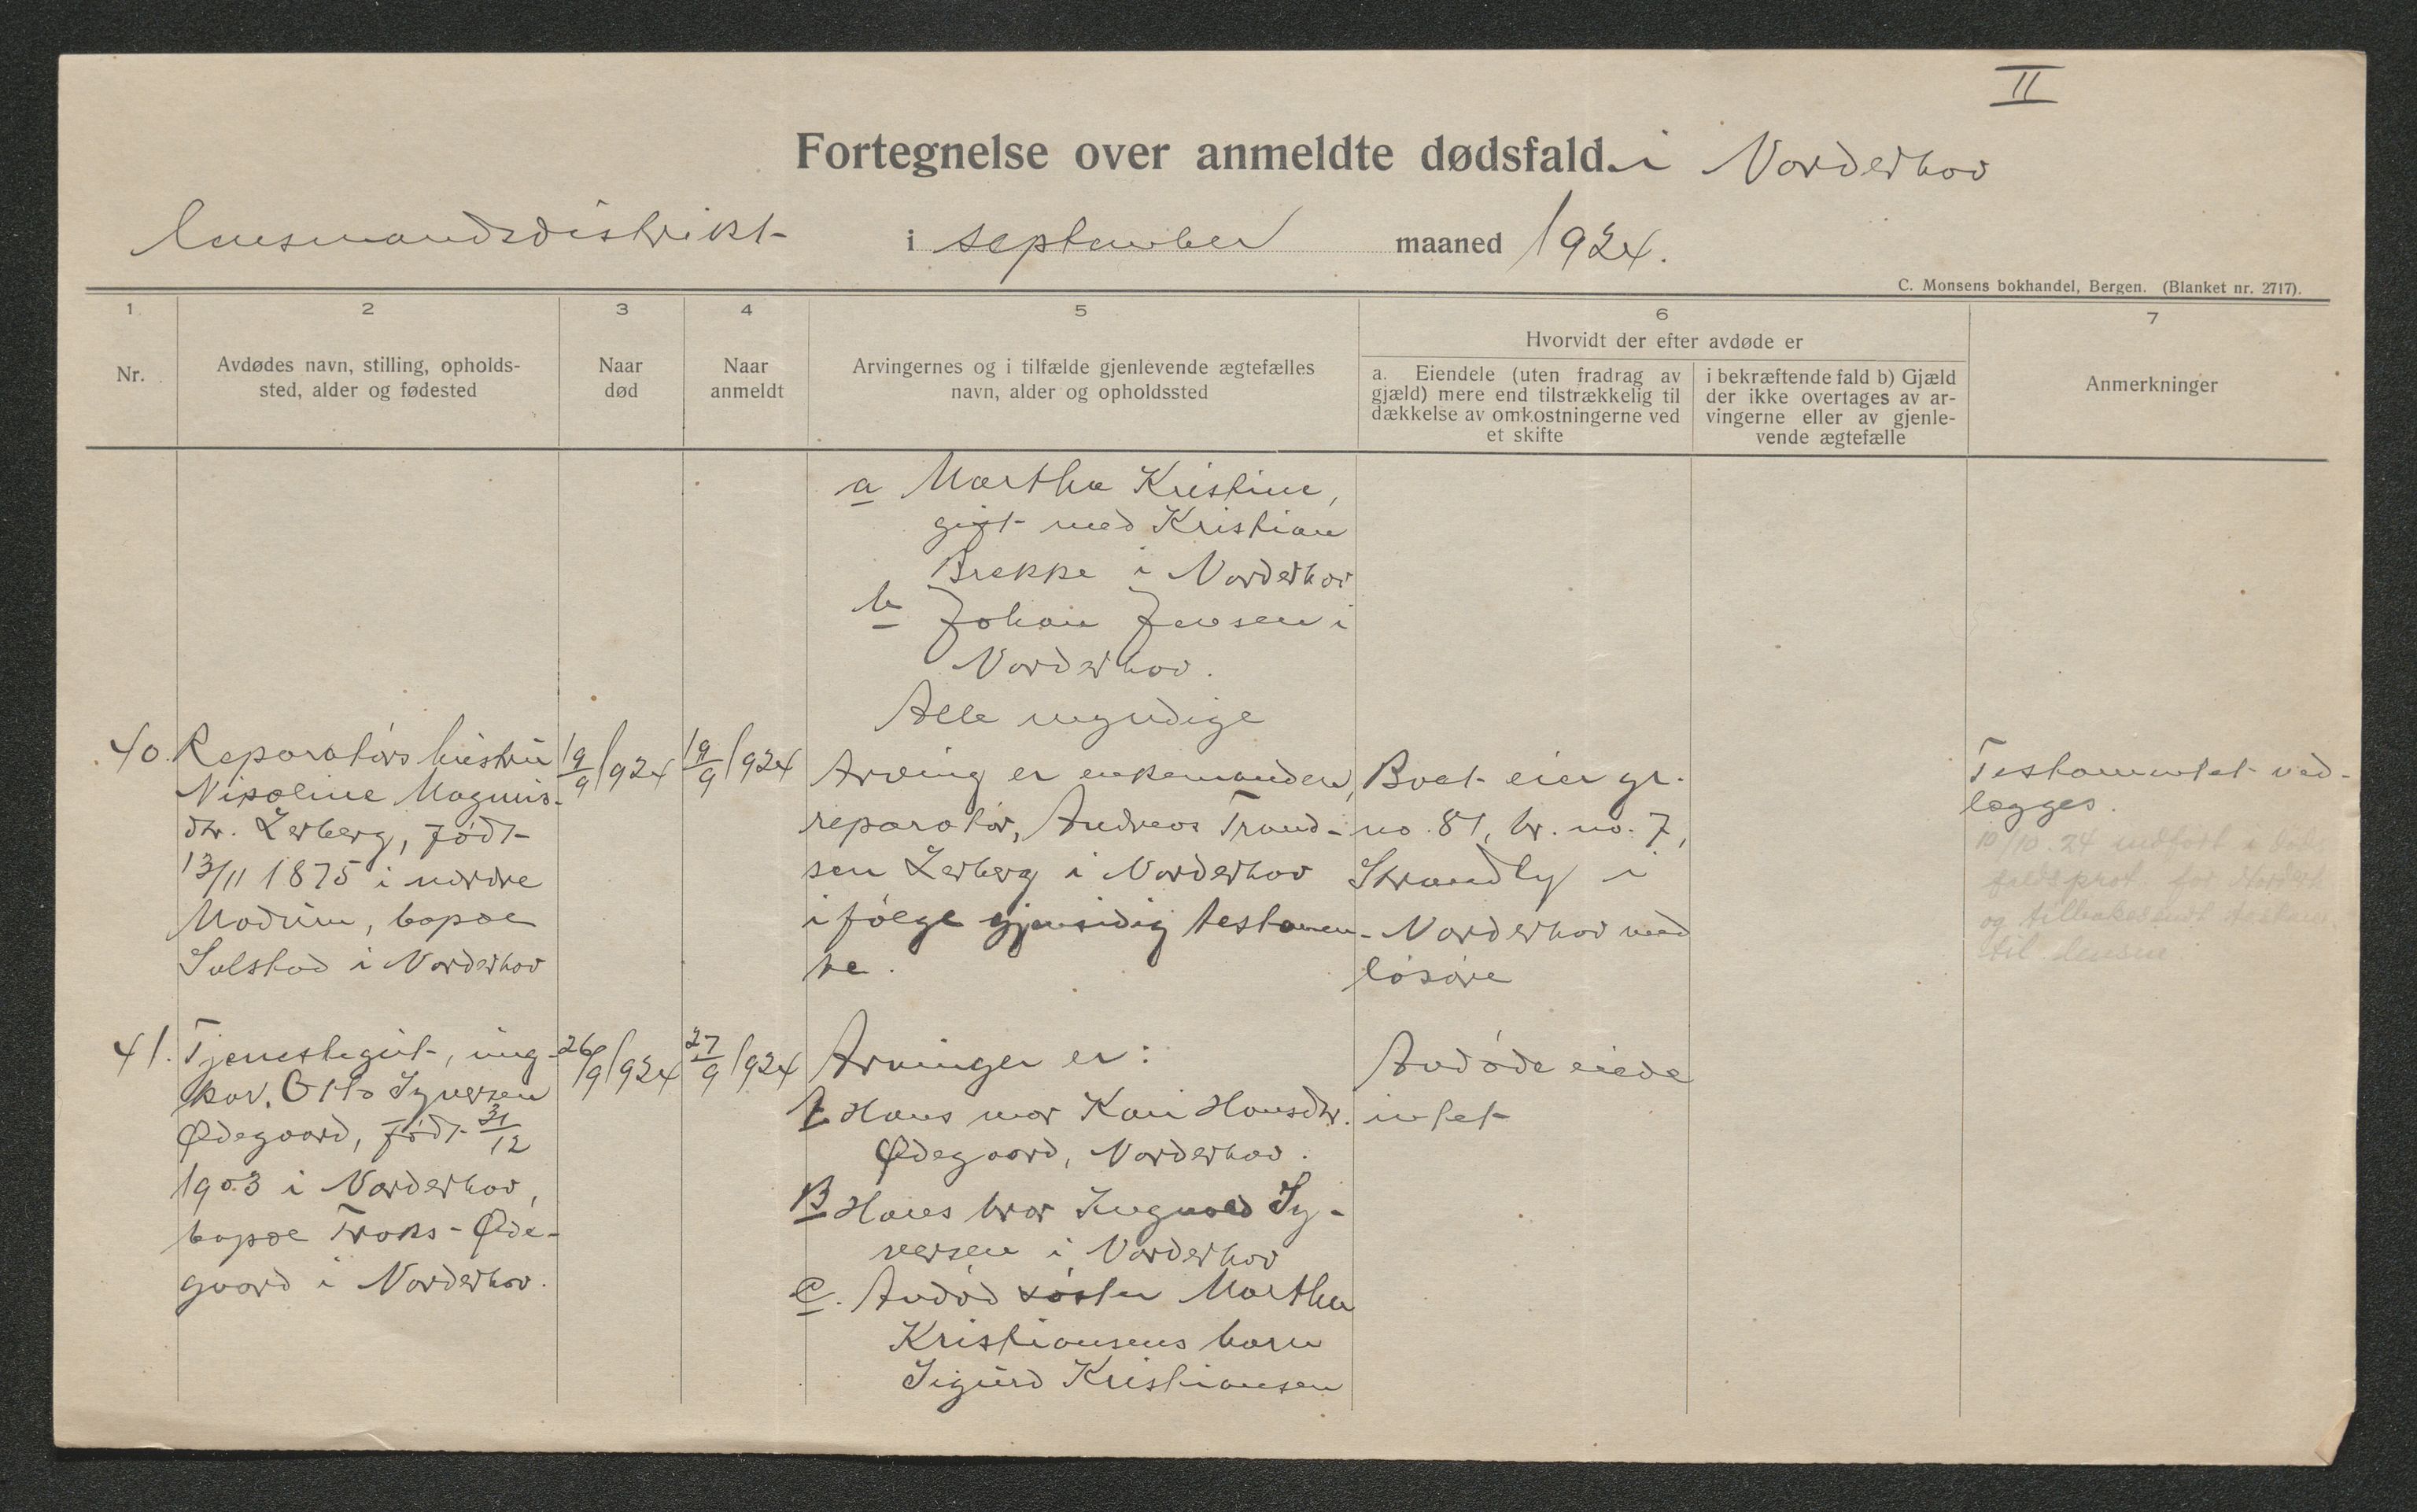 II
Fortegnelse over anmeldte dødsfald i Norderhov
lensmandsdistrikt i september maaned 1924.
C. Monsens bokhandel, Bergen. (Blanket nr. 2717).
1 2 3 4 5 6 7
Nr.
Avdødes navn, stilling, opholds-
sted, alder og fødested
Naar
død
Naar
anmeldt
Arvingernes og i tilfælde gjenlevende ægtefælles
navn, alder og opholdssted
Hvorvidt der efter avdøde er
a. Eiendele (uten fradrag av
gjæld) mere end tilstrækkelig til
dækkelse av omkostningerne ved
et skifte
i bekræftende fald b) Gjæld
der ikke overtages av ar-
vingerne eller av gjenle-
vende ægtefælle
Anmerkninger
a Martha Kristine,
gift med Kristian
Brekke i Norderhov
b Johan Jensen i
Norderhov.
Alle myndige
40. Reparatørs hustru
Nikoline Magnus-
dtr. Lerberg, født
13/11 1875 i nordre
Modum, bopæl
Solstad i Norderhov
19/9 1924
19/9 1924
Arving er enkemanden,
reparatør, Andreas Trond-
sen Lerberg i Norderhov
ifølge gjensidig testamen-
te.
Boet eier gr.
no. 81, br. no. 7,
Strandly i
Norderhov med
løsøre
Testamentet ved-
lægges.
10/10.24 indført i døds
faldsprot. for Norderh
og tilbakesendt testam
til lensm.
41. Tjenestegut, ung-
kar. Otto Syversen
Ødegaard, født 31/12
1903 i Norderhov,
bopæl Troks-Øde-
gaard i Norderhov.
26/9 1924
27/9 1924
Arvinger er:
A Hans mor Kari Hansdtr.
Ødegaard, Norderhov.
B Hans bror Ingvald Sy-
versen i Norderhov
C. Avdød søster Martha
Kristiansens barn
Sigurd Kristiansen
Avdøde eiede
intet